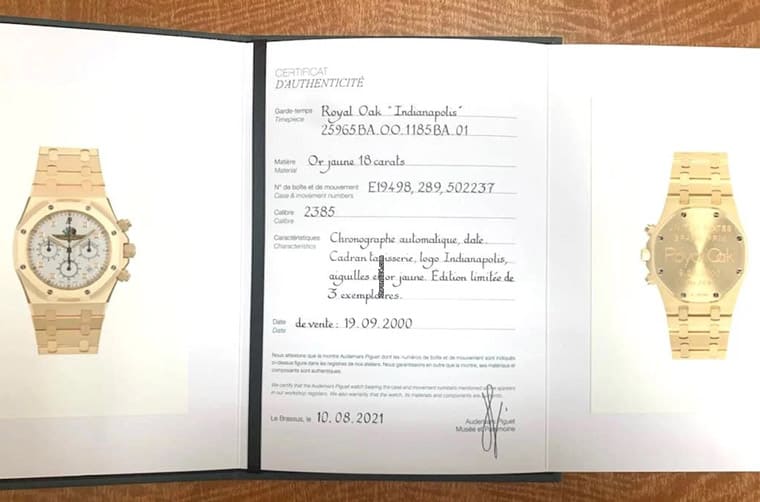 CERTIFICAT
D'AUTHENTICITÉ
Garde-temps Royal Oak "Indianapolis"
Timepiece 25965BA.OO.1185BA.01
Matière Or jaune 18 carats
Material
N° de boîte et de mouvement E19498, 289, 502237
Case & movement numbers
Calibre 2385
Calibre
Caractéristiques Chronographe automatique, date.
Characteristics Cadran tapisserie, logo Indianapolis,
aiguilles en or jaune. Edition limitée de
3 exemplaires.
Date de vente : 19.09.2000
Date
Nous attestons que la montre Audemars Piguet dont les numéros de boîte et de mouvement sont indiqués
ci-dessus figure dans les registres de nos ateliers. Nous garantissons en outre que la montre, ses matériaux et
composants sont authentiques.
We certify that the Audemars Piguet watch bearing the case and movement numbers mentioned above appears
in our workshop registers. We also warrant that the watch, its materials and components are authentic.
Le Brassus, le 10.08.2021
Audemars Piguet
Musée et Patrimoine
Royal Oak